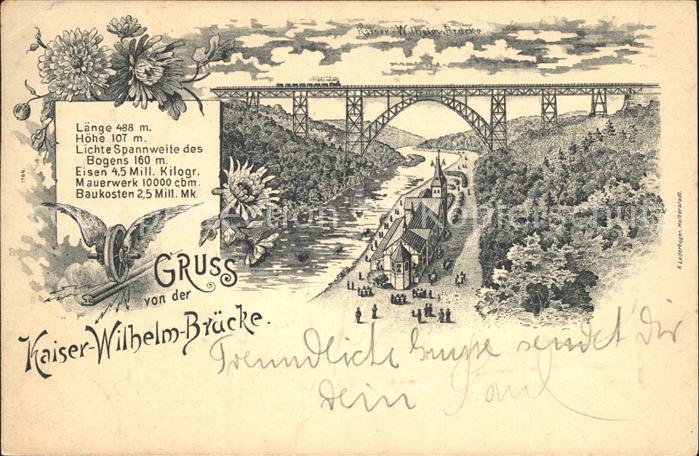 Kaiser-Wilhelm-Brücke
Länge 488 m.
Höhe 107 m.
Lichte Spannweite des
Bogens 160 m.
Eisen 4,5 Mill. Kilogr.
Mauerwerk 10000 cbm.
Baukosten 2,5 Mill. Mk.
1764.
R. Lederbogen, Halberstadt.
GRUSS
von der
Kaiser-Wilhelm-Brücke.
Freundliche Grüsse sendet Dir
Dein Paul